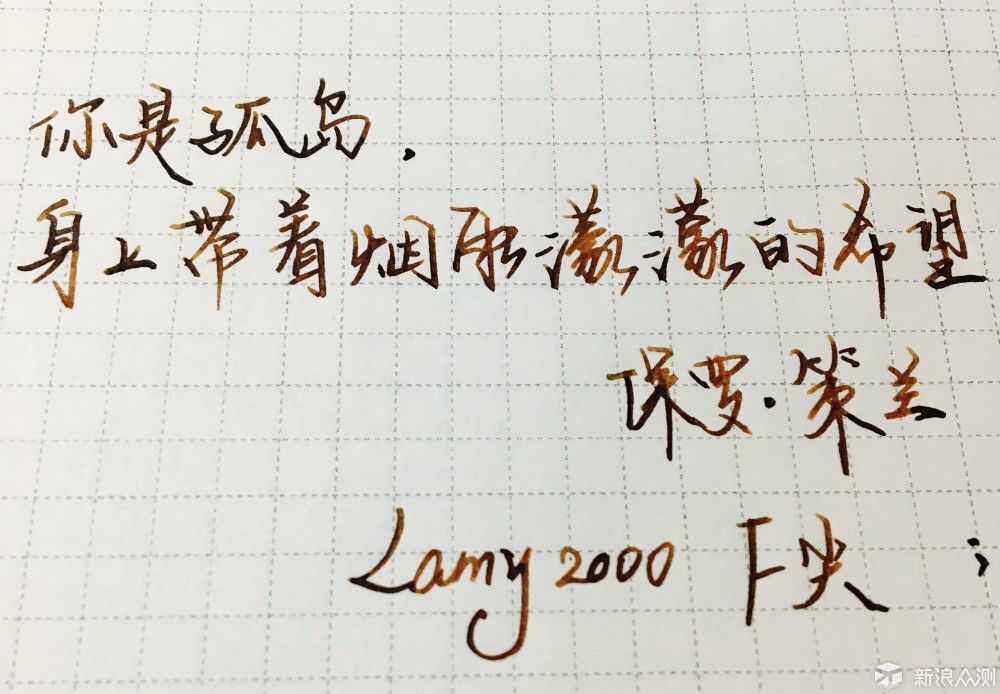 你是孤岛.
身上带着烟雨濛濛的希望
保罗·策兰
Lamy 2000 F尖
新浪众测